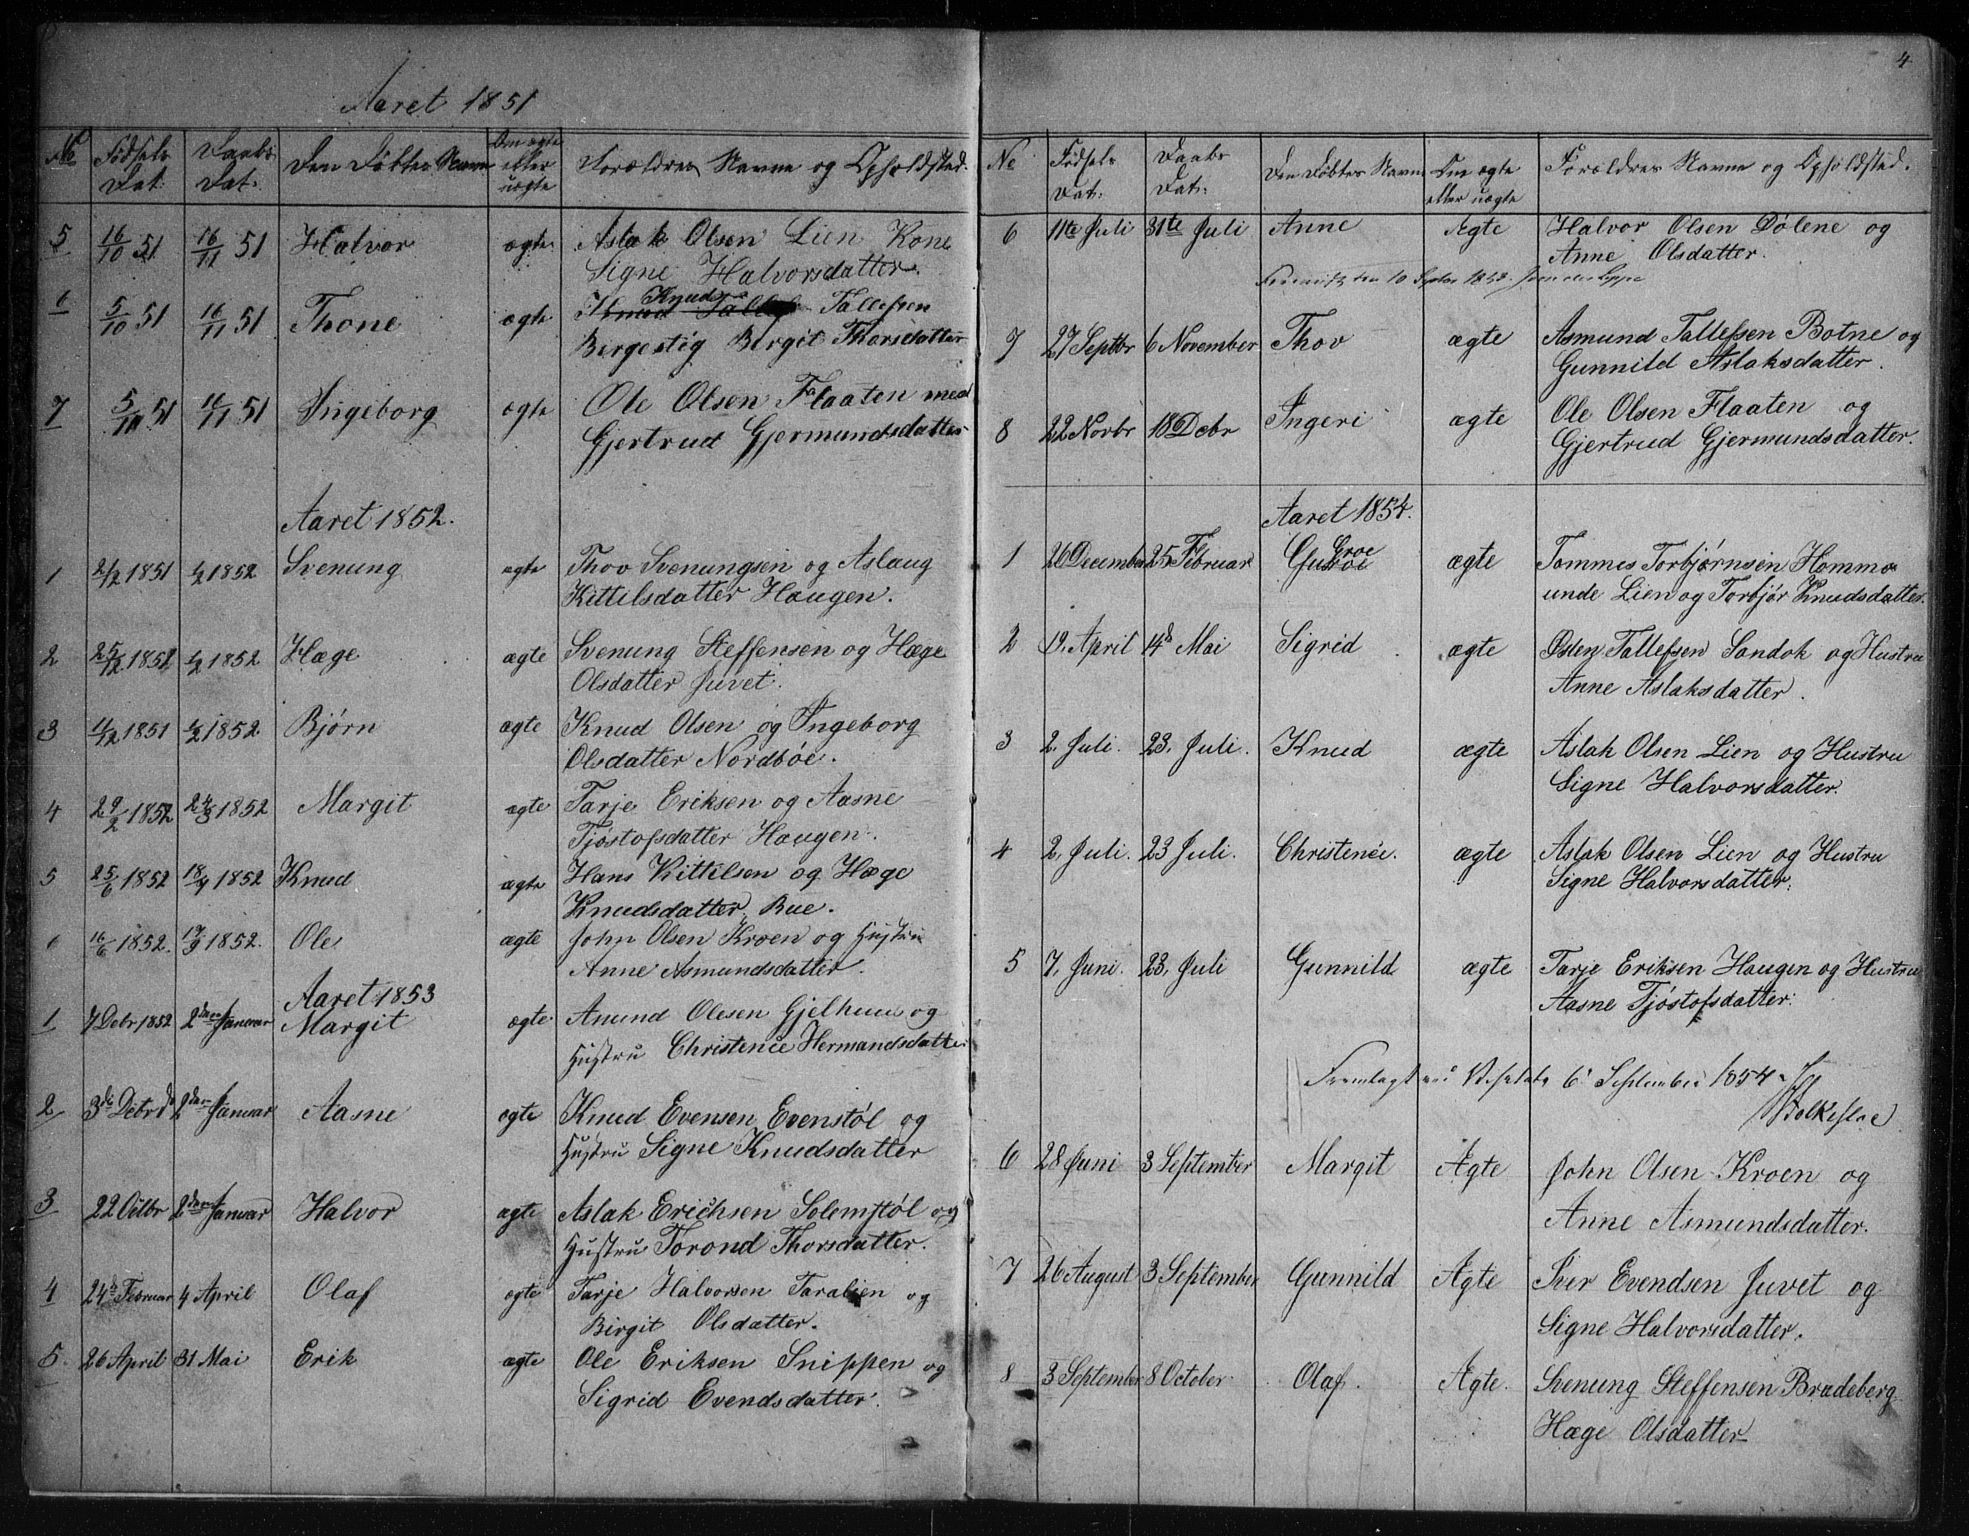 Aaret 1851
№ Fødsels Dat. Daabs Dat. Den Døbtes Navn Om ægte eller uægte Forældres Navne og Opholdsted.
5 16/10 51 16/11 51 Halvor ægte Aslak Olsen Lien Kone
Signe Halvorsdatter.
6 5/10 51 16/11 51 Thone ægte Knud Tallefsen
Bergestig Birgit Thorsdatter
7 51 16/11 51 Ingeborg ægte Ole Olsen Flaaten med
Gjertrud Gjermundsdatter
Aaret 1852.
1 2/12 1851 1852 Svenung ægte Thov Svenungsen og Aslaug
Kittilsdatter Haugen.
2 25/12 1852 1852 Hæge ægte Svenung Steffensen og Hæge
Olsdatter Juvet.
3 11/12 1851 1852 Bjørn ægte Knud Olsen og Ingeborg
Olsdatter Nordbøe.
4 29/2 1852 24/3 1852 Margit ægte Tarje Eriksen og Aasne
Tjøstofsdatter Haugen.
5 25/6 1852 18/9 1852 Knud ægte Hans Kittilsen og Hæge
Knudsdatter Bue.
6 16/6 1852. 1852. Ole ægte John Olsen Kroen og Hustru
Anne Asmundsdatter.
Aaret 1853
1 7 Debr 1852 2den Januar Margit ægte Amund Olesen Gjelhuus og
Hustru Christence Hermandsdatter
2 3de Debr do 2den Januar Aasne ægte Knud Evensen Evenstøl og
Hustru Signe Knudsdatter
3 22 Octbr 2den Januar Halvor ægte Aslak Erichsen Solemstøl og
Hustru Torond Thorsdatter.
4 24de Februar 4 April Olaf ægte Tarje Halvorsen Taralien og
Birgit Olsdatter.
5. 26 April 31 Mai Erik ægte Ole Eriksen Snippen og
Sigrid Evendsdatter.
4
№ Fødsels Dat. Daabs Dat. Den Døbtes Navn Om ægte eller uægte Forældres Navne og Opholdsted.
6 11te Juli 31te Juli Anne Ægte Halvor Olsen Dølene og
Anne Olsdatter.
10 Septbr 1853.
7 27 Septbr 6 November Thov ægte Asmund Tallefsen Botne og
Gunnild Aslaksdatter.
8 22 Novbr 18 Debr Ingeri ægte Ole Olsen Flaaten og
Gjertrud Gjermundsdatter.
Aaret 1854.
1 26 December 25 Februar Groe ægte Tommes Torbjørnsen Hommo
unde Lien og Torbjør Knudsdatter.
2 19. April 14de Mai Sigrid ægte Østen Tallefsen Sandok og Hustru
Anne Aslaksdatter.
3 2. Juli. 23. Juli. Knud ægte Aslak Olsen Lien og Hustru
Signe Halvorsdatter.
4 2. Juli. 23 Juli. Christence. ægte Aslak Olsen Lien og Hustru
Signe Halvorsdatter.
5 7. Juni. 23. Juli Gunnild ægte Tarje Eriksen Haugen og Hustru
Aasne Tjøstofsdatter.
Fremlagt ved Visitats 6 September 1854
6 28 Juni 3 September Margit Ægte John Olsen Kroen og
Anne Asmundsdatter.
7 26 August 3 September Gunnild Ægte Iver Evendsen Juvet og
Signe Halvorsdatter.
8 3 September 8 October Olaf. Ægte. Svenung Steffensen Brudeberg
Hæge Olsdatter